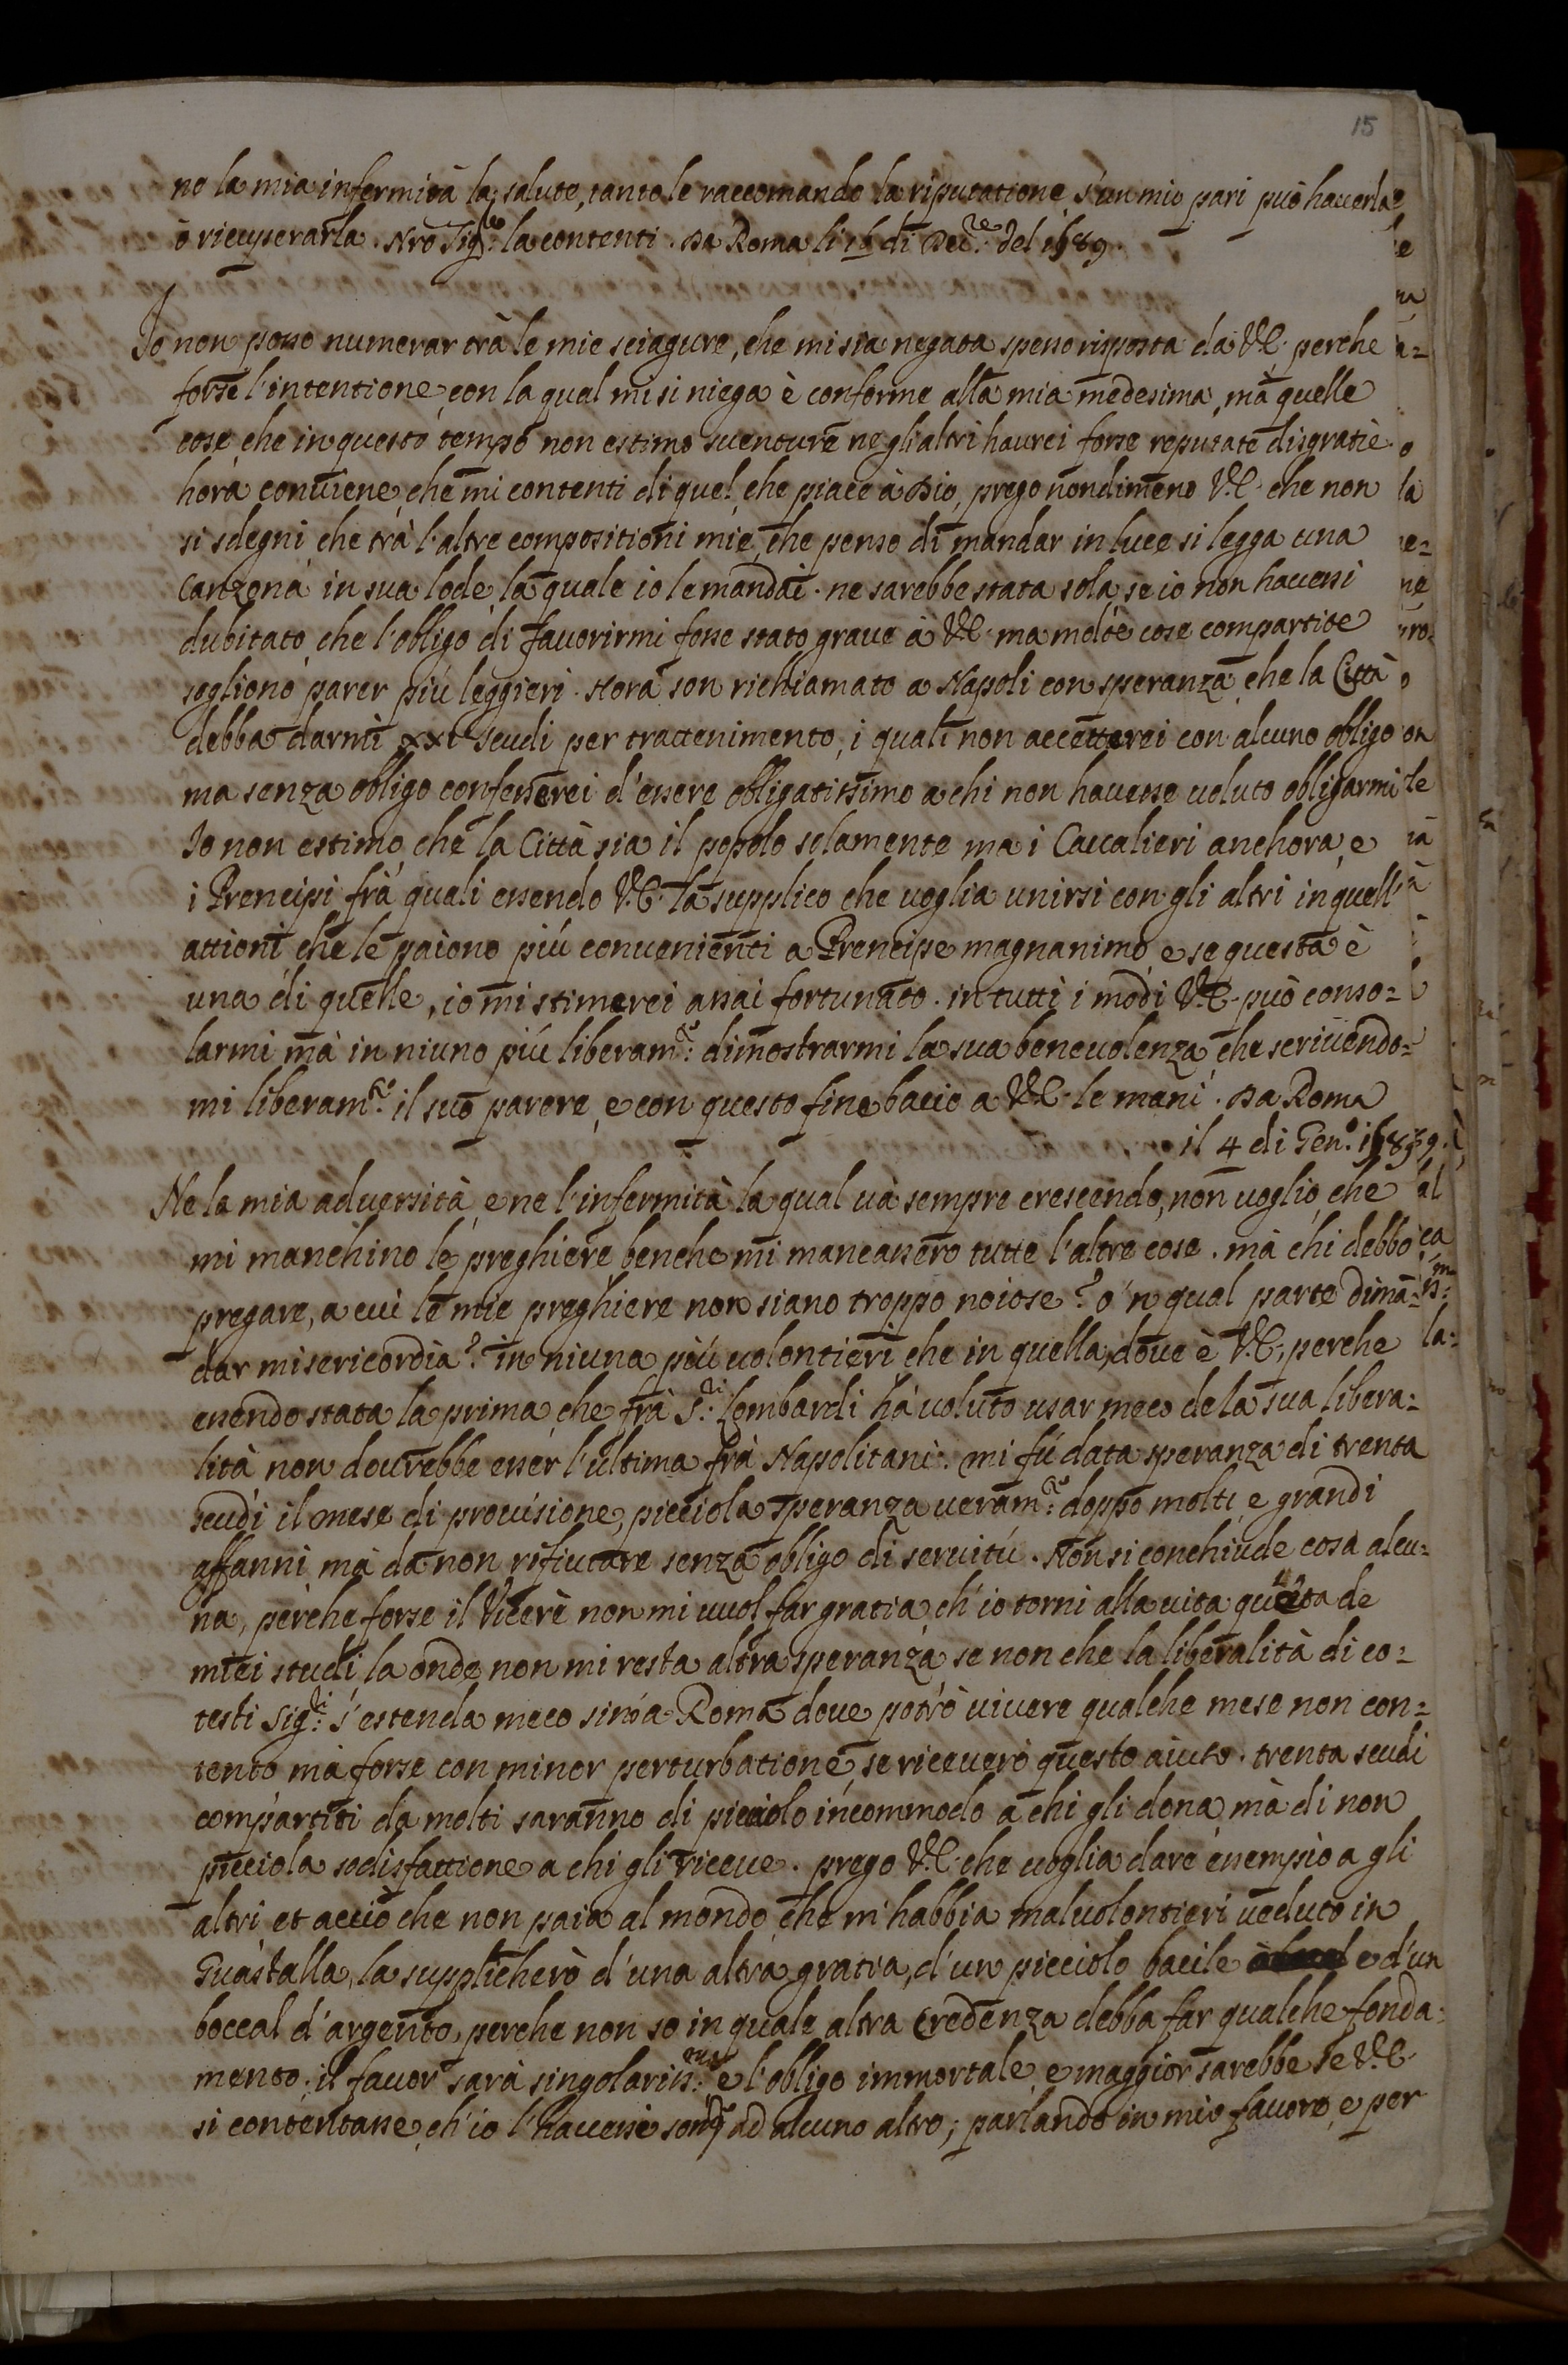 15
no la mia infermità la salute, tanto le raccomando la riputatione s'un mio pari può haverla
ò ricuperarla. Nro Sig.re la contenti. Da Roma li 16 di Dec.re del 1589.
Io non posso numerar trà le mie sciagure, che mi sia negata spesso risposta da V.E. perche
forse l'intentione, con la qual mi si niega è conforme alla mia medesima, mà quelle
cose, che in questo tempo non estimo sventure ne gli altri haurei forse reputate disgratie
hora conviene, che mi contenti di quel, che piace à Dio, prego nondimeno V.E. che non
si sdegni che trà l'altre compositioni mie, che penso di mandar in luce si legga una
Canzona in sua lode, la quale io le mandai. ne sarebbe stata sola, se io non havessi
dubitato, che l'obligo di favorirmi fosse stato grave à V.E. ma molte cose compartite
sogliono parer più leggieri. Hora son richiamato a Napoli con speranza, che la Città
debba darmi scudi per trattenimento, i quali non accetterei con alcuno obligo
ma senza obligo confesserei d'essere obligatissimo a chi non havesse voluto obligarmi
Io non estimo, che la Città sia il popolo solamente ma i Cavalieri anchora, e
i Prencipi frà quali essendo V.E. la supplico che voglia unirsi con gli altri in quell'
attioni che le paiono più convenienti a Prencipe magnanimo, e se questa è
una di quelle, io mi stimerei assai fortunato. in tutti i modi V.E. può conso=
larmi mà in niuno più liberam.te dimostrarmi la sua benevolenza, che scrivendo=
mi liberam.te il suo parere, e con questo fine bacio a V.E. le mani. Da Roma
il 4 di Gen.o 1589.
Ne la mia adversità, e ne l'infermità la qual và sempre crescendo, non voglio, che
mi manchino le preghiere benche mi mancassero tutte l'altre cose. mà chi debbo
pregare, a cui le mie preghiere non siano troppo noiose? ò 'n qual parte dimā=
dar misericordia? in niuna più volontieri che in quella, dove è V.E., perche
essendo stata la prima, che frà S.ri Lombardi hà voluto usar meco de la sua libera=
lità non dovrebbe esser l'ultima frà Napolitani. mi fù data speranza di trenta
scudi il mese di provisione, picciola speranza veram.te doppo molti, e grandi
affanni mà da non rifiutare senza obligo di servitù. Non si conchiude cosa alcu=
na, perche forse il Vicerè non mi vuol far gratia, ch'io torni alla vita quieta de
miei studi, la onde non mi resta altra speranza se non che la liberalità di co=
testi Sig.ri s'estenda meco sino à Roma dove potrò vivere qualche mese non con=
tento mà forse con minor perturbatione, se riceverò questo aiuto. trenta scudi
compartiti da molti saranno di picciolo incommodo a chi gli dona, mà di non
picciola sodisfattione a chi gli riceve. prego V.E. che voglia dare essempio a gli
altri, et acciò che non paia al mondo, che m'habbia malvolontieri veduto in
Guastalla, la supplicherò d'una altra gratia, d'un picciolo bacile e d'un
boccal d'argento, perche non so in quale altra Credenza debba far qualche fonda=
mento. il favor sarà singolariss.mo e l'obligo immortale, e maggior sarebbe se V.E.
si contentasse, ch'io l'havessi ad alcuno altro; parlando in mio favore, e per